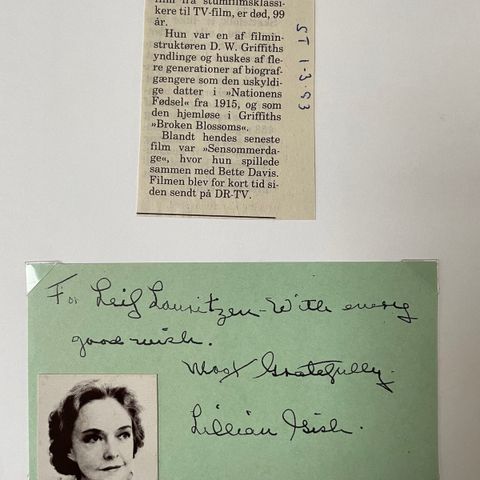 film fra stumfilmsklassi-
kere til TV-film, er død, 99
år.
Hun var en af filmin-
struktøren D. W. Griffiths
yndlinge og huskes af fle-
re generationer af biograf-
gængere som den uskyldi-
ge datter i »Nationens
Fødsel« fra 1915, og som
den hjemløse i Griffiths
»Broken Blossoms«.
Blandt hendes seneste
film var »Sensommerda-
ge«, hvor hun spillede
sammen med Bette Davis.
Filmen blev for kort tid si-
den sendt på DR-TV.
ST 1-3.93
For Leif Lauritzen - With every
good wish.
Most Gratefully.
Lillian Gish.